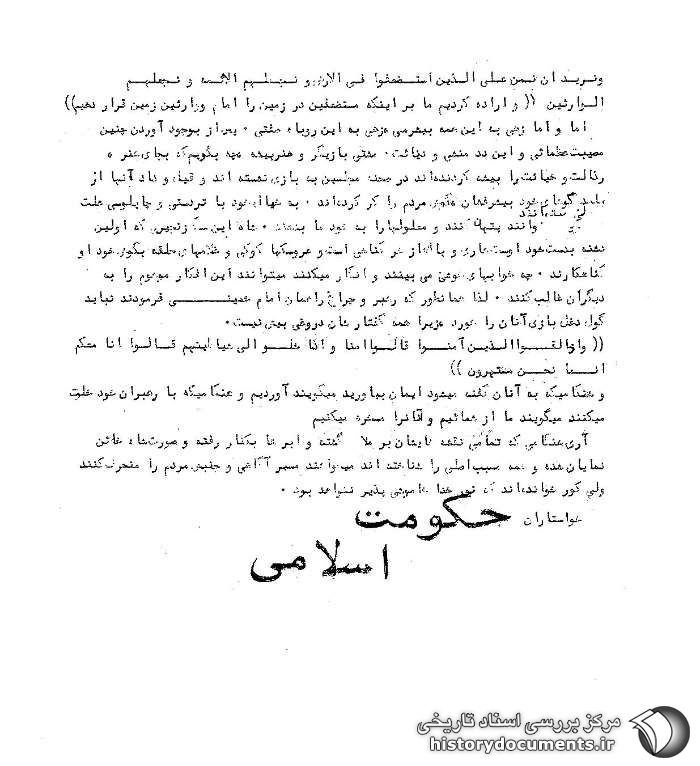 ونرید ان نمن علی الذین استضعفوا فی الارض و نجعلهم الائمه و نجعلهم
الوارثین (( و اراده کردیم ما بر اینکه مستضعفین در زمین را امام و وارثین زمین قرار دهیم))
اما و اما زهی به این همه بیشرمی زهی به این روباه صفتی ۰ بعد از بوجود آوردن چنین
مصیبت عظمائی و این دد منشی و دنائت ۰ مفتی بازیگر و هنرپیشه چه بگویم که بجای هنر
رذالت و خیانت را پیشه کرده‌اند در صحنه مجلسین به بازی نشسته اند و قیل و داد آنها از
بلندگوهای خود بیفرهنگان گوش مردم را کر کرده‌اند ۰ به خود با تردستی و چاپلوسی علت
نتوانسته‌اند
توانند پنهان کنند و معلولها را به خود ما بدهند ۰ شاه این سگ زنجیری که اولین
نقشه بدست خود اوست عاری و با آغاز هر گناهی است و عروسکهای کوکی و غلامهای حلقه بگوش خود او
گناهکارند ۰ چه خوابهای خوشی می بینند و انکار میکنند میتوانند این افکار موهوم را به
دیگران غالب کنند ۰ لذا همانطور که رهبر و چراغ راهمان امام خمینی فرمودند نباید
گول دغل بازی آنان را خورد زیرا همه گفتارشان دروغی بیش نیست۰
(( واذا لقوا الذین آمنوا قالوا امنا و اذا خلوا الی شیاطینهم قالوا انا معکم
انما نحن مستهزون ))
و هنگامیکه به آنان گفته میشود ایمان بیاورید میگویند آوردیم و هنگامیکه با رهبران خود خلوت
میکنند میگویند ما از شمائیم و آنانرا مسخره میکنیم
آری هنگامی که تمامی نقشه هایشان بر ملا گشته و ابر ها بکنار رفته و صورت شاه خائن
نمایان شده و همه مسبب اصلی را شناخته اند میخواهند مسیر آگاهی و جنبش مردم را منحرف کنند
ولی کور خوانده‌اند که نور خدا خاموشی پذیر نخواهد بود ۰
خواستاران حکومت
اسلامی
مرکز بررسی اسناد تاریخی
historydocuments.ir